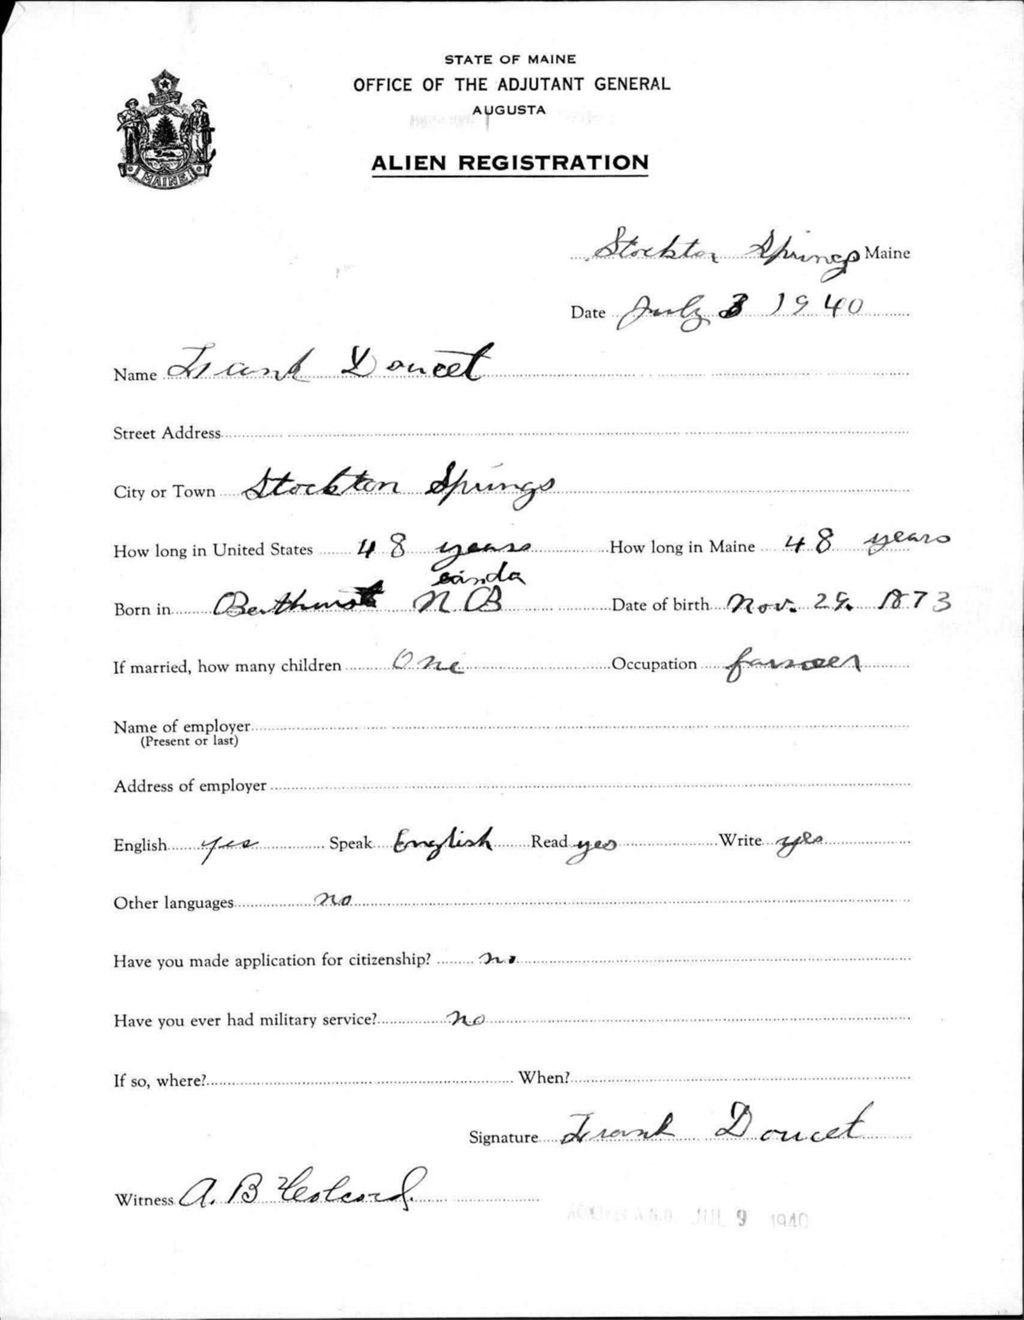 STATE OF MAINE
OFFICE OF THE ADJUTANT GENERAL
AUGUSTA
ALIEN REGISTRATION
MAINE
Stockton Springs Maine
Date July 3 1940
Name Frank Doucet
Street Address
City or Town Stockton Springs
How long in United States 48 years How long in Maine 48 years
canda
Born in Barthurst N B Date of birth Nov. 29. 1873
If married, how many children One Occupation farmer
Name of employer
(Present or last)
Address of employer
English yes Speak English Read yes Write yes
Other languages no
Have you made application for citizenship? no
Have you ever had military service? no
If so, where? When?
Signature Frank Doucet
Witness A. B
JUL 9 1940